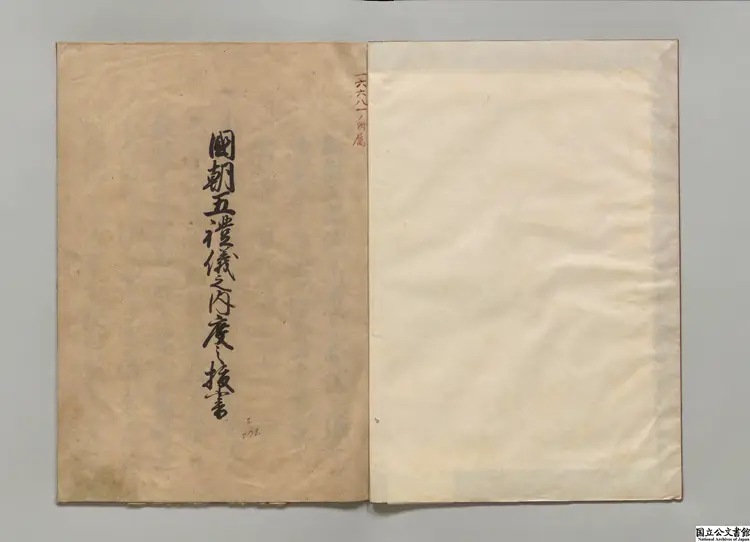 一六六八一 附屬
國朝五禮儀之内度之抜書
国立公文書館
National Archives of Japan